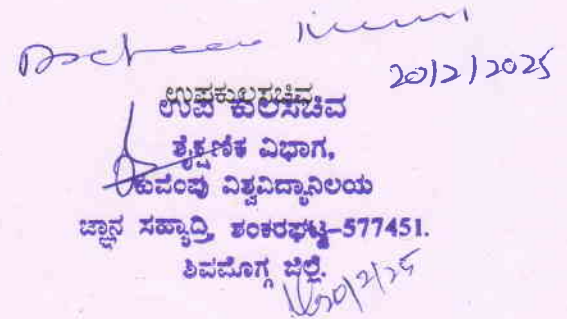 20/2/2025
ಉಪಕುಲಸಚಿವ
ಉಪ ಕುಲಸಚಿವ
ಶೈಕ್ಷಣಿಕ ವಿಭಾಗ,
ಕುವೆಂಪು ವಿಶ್ವವಿದ್ಯಾನಿಲಯ
ಜ್ಞಾನ ಸಹ್ಯಾದ್ರಿ, ಶಂಕರಘಟ್ಟ–577451.
ಶಿವಮೊಗ್ಗ ಜಿಲ್ಲೆ.
20/2/25